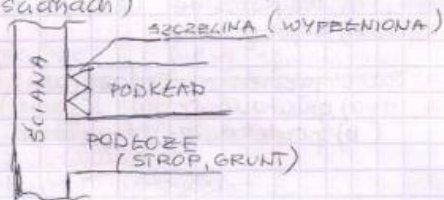 ścianach)
SZCZELINA (WYPEŁNIONA)
ŚCIANA
PODKŁAD
PODŁOŻE
(STROP, GRUNT)